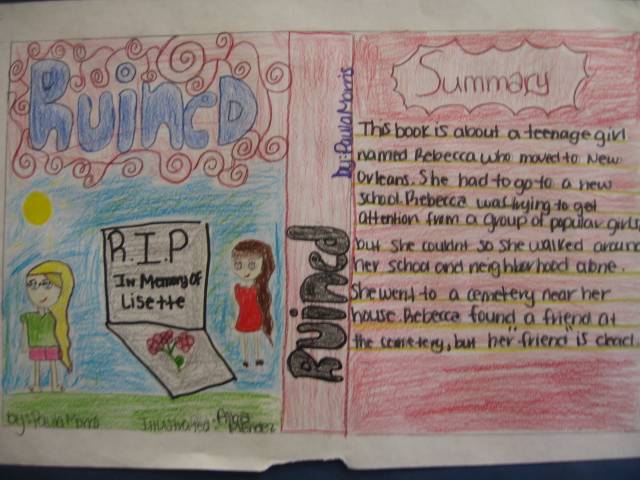 Ruined
R.I.P
In Memory of
Lisette
by: Paula Morris
Illustrated: Mendez
by: Paula Morris
Ruined
Summary
This book is about a teenage girl
named Rebecca who moved to New
Orleans. She had to go to a new
school. Rebecca was trying to get
attention from a group of popular girls,
but she couldnt so she walked around
her school and neighborhood alone.
She went to a cemetery near her
house. Rebecca found a friend at
the cemetery, but her "friend" is dead.